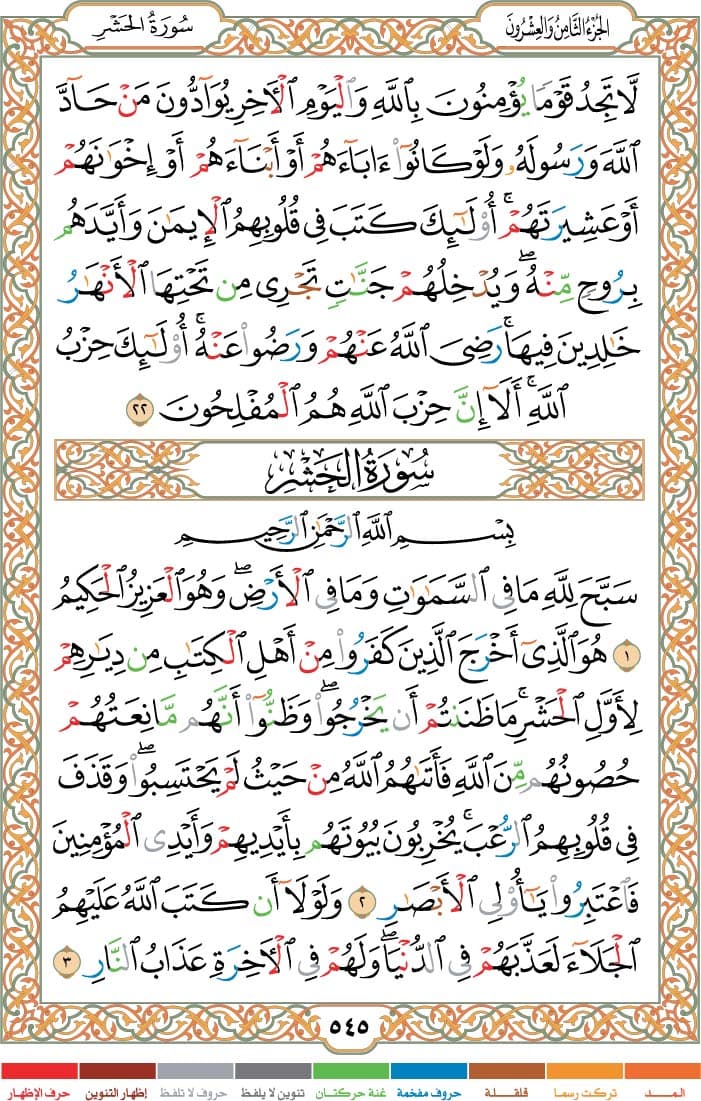 الجُزْءُ الثَّامِنُ وَالعِشْرُونَ
سُورَةُ الحَشْرِ
لَّا تَجِدُ قَوْمًا يُؤْمِنُونَ بِٱللَّهِ وَٱلْيَوْمِ ٱلْأٓخِرِ يُوَآدُّونَ مَنْ حَآدَّ
ٱللَّهَ وَرَسُولَهُۥ وَلَوْ كَانُوٓا۟ ءَابَآءَهُمْ أَوْ أَبْنَآءَهُمْ أَوْ إِخْوَٰنَهُمْ
أَوْ عَشِيرَتَهُمْ ۚ أُو۟لَٰٓئِكَ كَتَبَ فِى قُلُوبِهِمُ ٱلْإِيمَٰنَ وَأَيَّدَهُم
بِرُوحٍ مِّنْهُ ۖ وَيُدْخِلُهُمْ جَنَّٰتٍ تَجْرِى مِن تَحْتِهَا ٱلْأَنْهَٰرُ
خَٰلِدِينَ فِيهَا ۚ رَضِىَ ٱللَّهُ عَنْهُمْ وَرَضُوا۟ عَنْهُ ۚ أُو۟لَٰٓئِكَ حِزْبُ
ٱللَّهِ ۚ أَلَآ إِنَّ حِزْبَ ٱللَّهِ هُمُ ٱلْمُفْلِحُونَ ٢٢
سُورَةُ الحَشْرِ
بِسْمِ ٱللَّهِ ٱلرَّحْمَٰنِ ٱلرَّحِيمِ
سَبَّحَ لِلَّهِ مَا فِى ٱلسَّمَٰوَٰتِ وَمَا فِى ٱلْأَرْضِ ۖ وَهُوَ ٱلْعَزِيزُ ٱلْحَكِيمُ
١ هُوَ ٱلَّذِىٓ أَخْرَجَ ٱلَّذِينَ كَفَرُوا۟ مِنْ أَهْلِ ٱلْكِتَٰبِ مِن دِيَٰرِهِمْ
لِأَوَّلِ ٱلْحَشْرِ ۚ مَا ظَنَنتُمْ أَن يَخْرُجُوا۟ ۖ وَظَنُّوٓا۟ أَنَّهُم مَّانِعَتُهُمْ
حُصُونُهُم مِّنَ ٱللَّهِ فَأَتَىٰهُمُ ٱللَّهُ مِنْ حَيْثُ لَمْ يَحْتَسِبُوا۟ ۖ وَقَذَفَ
فِى قُلُوبِهِمُ ٱلرُّعْبَ ۚ يُخْرِبُونَ بُيُوتَهُم بِأَيْدِيهِمْ وَأَيْدِى ٱلْمُؤْمِنِينَ
فَٱعْتَبِرُوا۟ يَٰٓأُو۟لِى ٱلْأَبْصَٰرِ ٢ وَلَوْلَآ أَن كَتَبَ ٱللَّهُ عَلَيْهِمُ
ٱلْجَلَآءَ لَعَذَّبَهُمْ فِى ٱلدُّنْيَا ۖ وَلَهُمْ فِى ٱلْأٓخِرَةِ عَذَابُ ٱلنَّارِ ٣
٥٤٥
المــــد تركت رسما قلقلة حروف مفخمة غنة حركتان تنوين لا يلفظ حروف لا تلفظ إظهار التنوين حرف الإظهار